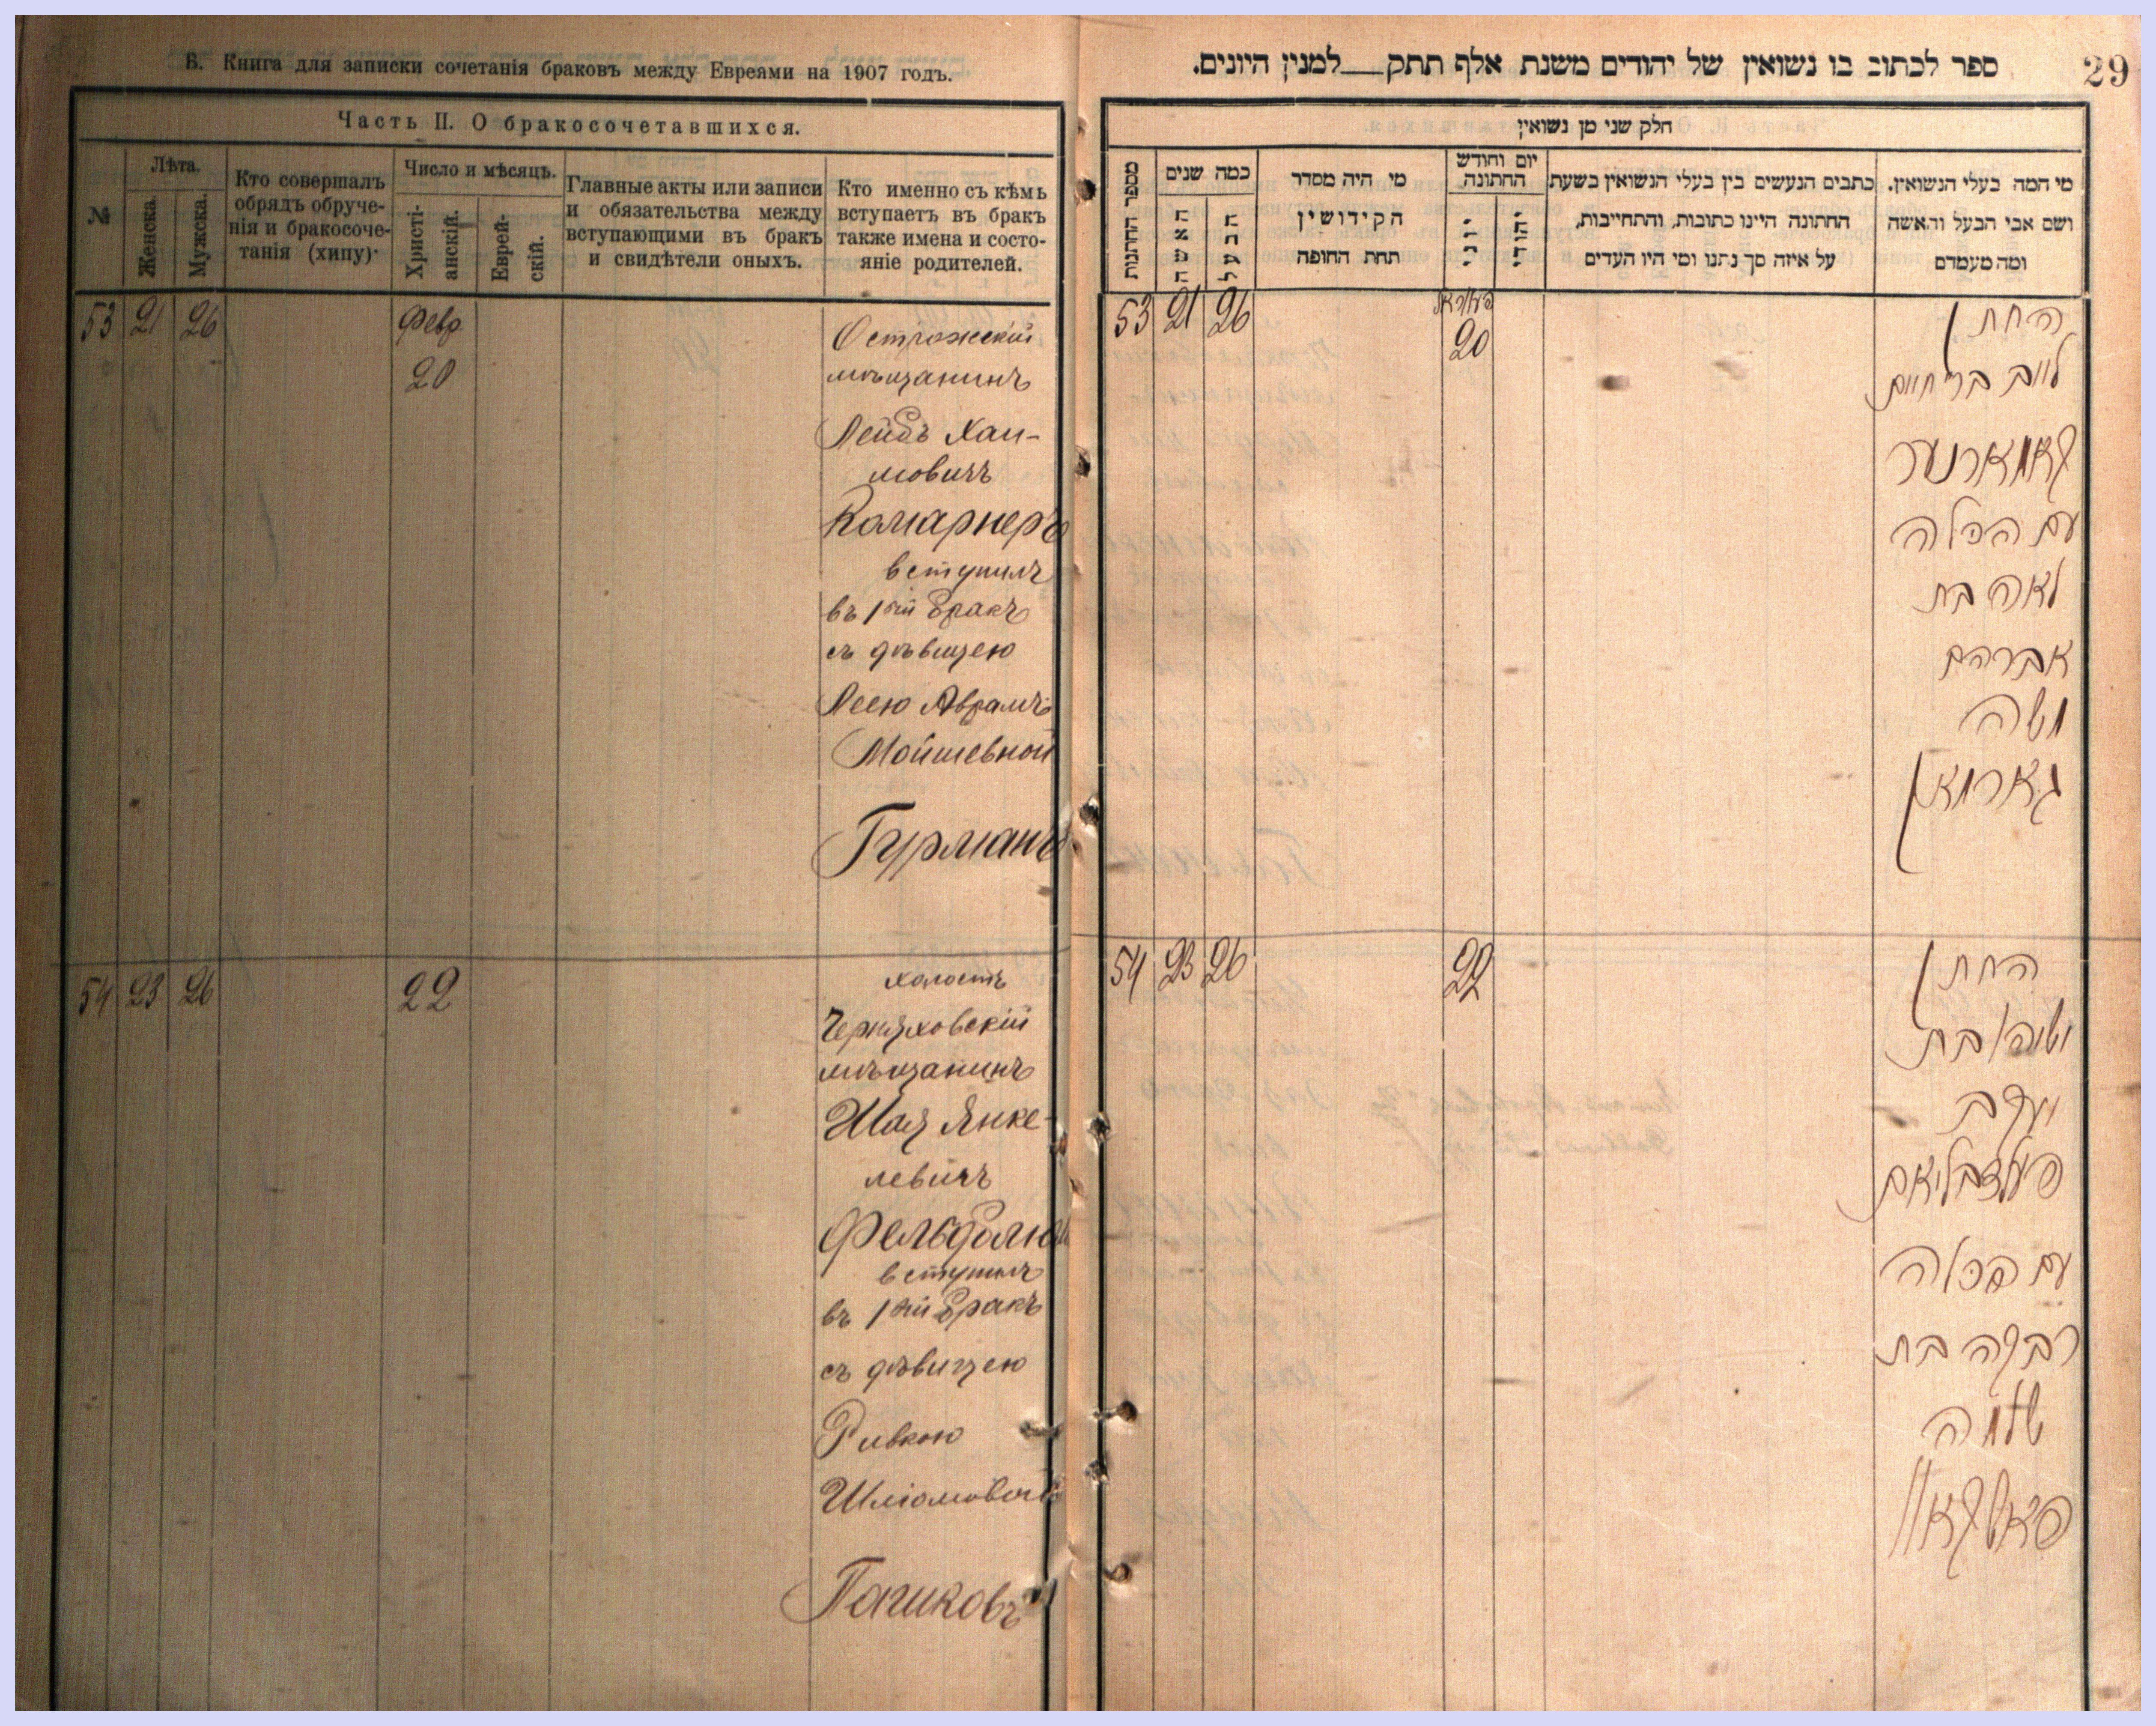 В. Книга для записки сочетанія браковъ между Евреями на 1907 годъ.
Часть II. О бракосочетавшихся.
№
Лѣта.
Женска.
Мужска.
Кто совершалъ
обрядъ обруче-
нія и бракосоче-
танія (хипу)·
Число и мѣсяцъ.
Христі-
анскій.
Еврей-
скій.
Главные акты или записи
и обязательства между
вступающими въ бракъ
и свидѣтели оныхъ.
Кто именно съ кѣмъ
вступаетъ въ бракъ
также имена и состо-
яніе родителей.
53 21 26
Февр
20
Острожскій
мѣщанинъ
Лейбъ Хаи-
мовичъ
Комарнеръ
вступилъ
въ 1ый бракъ
съ дѣвицею
Леею Аврамъ
Мойшевной
Гурманъ
54 23 26 22
холостъ
Черняховскій
мѣщанинъ
Шая Янке-
левичъ
Фельдблюм
вступилъ
въ 1ый бракъ
съ дѣвицею
Ривкою
Шліомовой
29
ספר לכתוב בו נשואין של יהודים משנת אלף תתק__למנין היונים.
חלק שני מן נשואין
מספר החתונות
כמה שנים
האשה
הבעל
מי היה מסדר
הקידושין
תחת החופה
יום וחודש
החתונה
יוני
יהודי
כתבים הנעשים בין בעלי הנשואין בשעת
החתונה היינו כתובות, והתחייבות,
על איזה סך נתנו ומי היו העדים
מי המה בעלי הנשואין.
ושם אבי הבעל והאשה
ומה מעמדם
53 21 26
20
החתן
לייב בר׳ חיים
קאמארנער
עם הכלה
לאה בת
אברהם
משה
גארמאן
54 23 26 22
החתן
ישעיה בן
יעקב
פעלדבליאם
עם הכלה
רבקה בת
שלמה